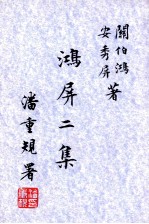 關伯鴻
安秀屏
著
鴻屏二集
潘重規署